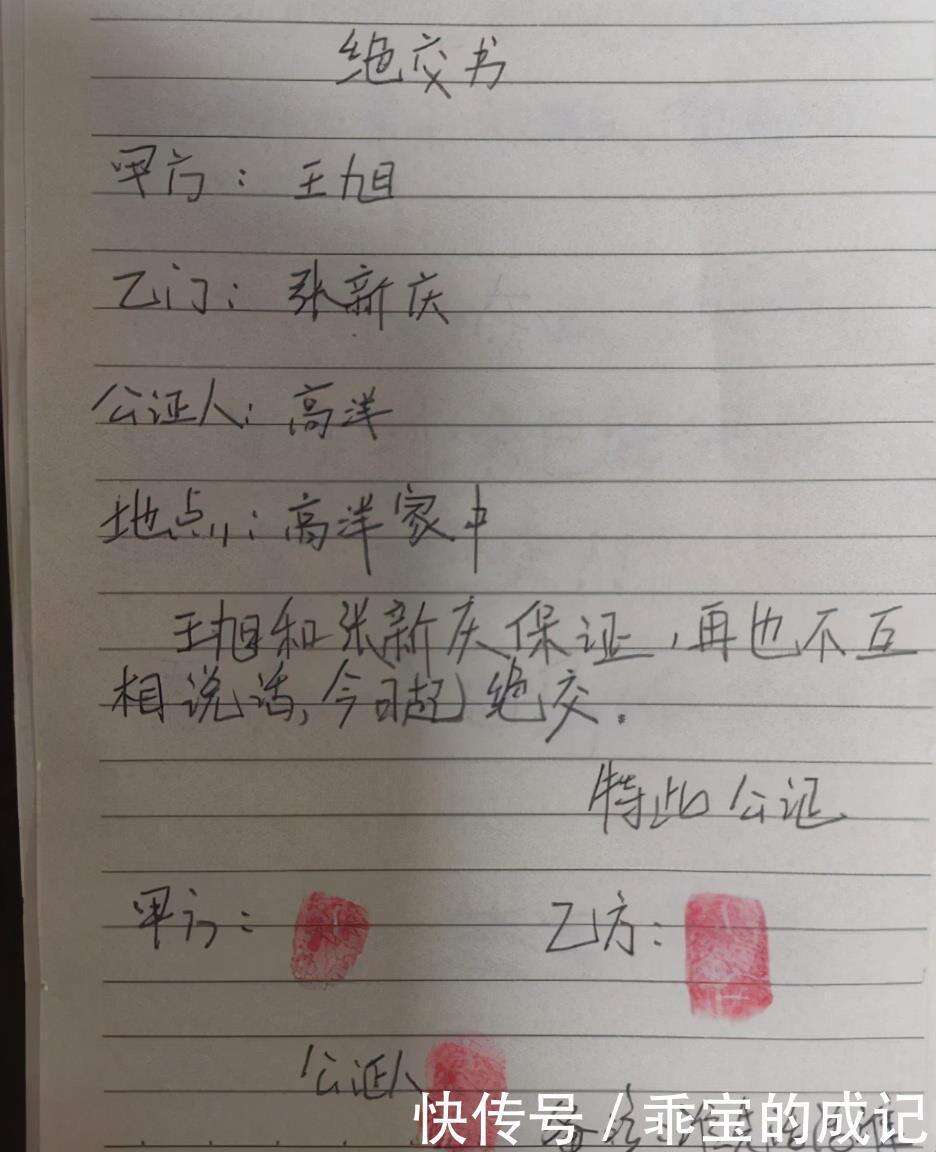 绝交书
甲方：王旭
乙方：张新庆
公证人：高洋
地点：高洋家中
王旭和张新庆保证，再也不互
相说话，今日起绝交。
特此公证
甲方： 乙方：
公证人
快传号/乖宝的成记